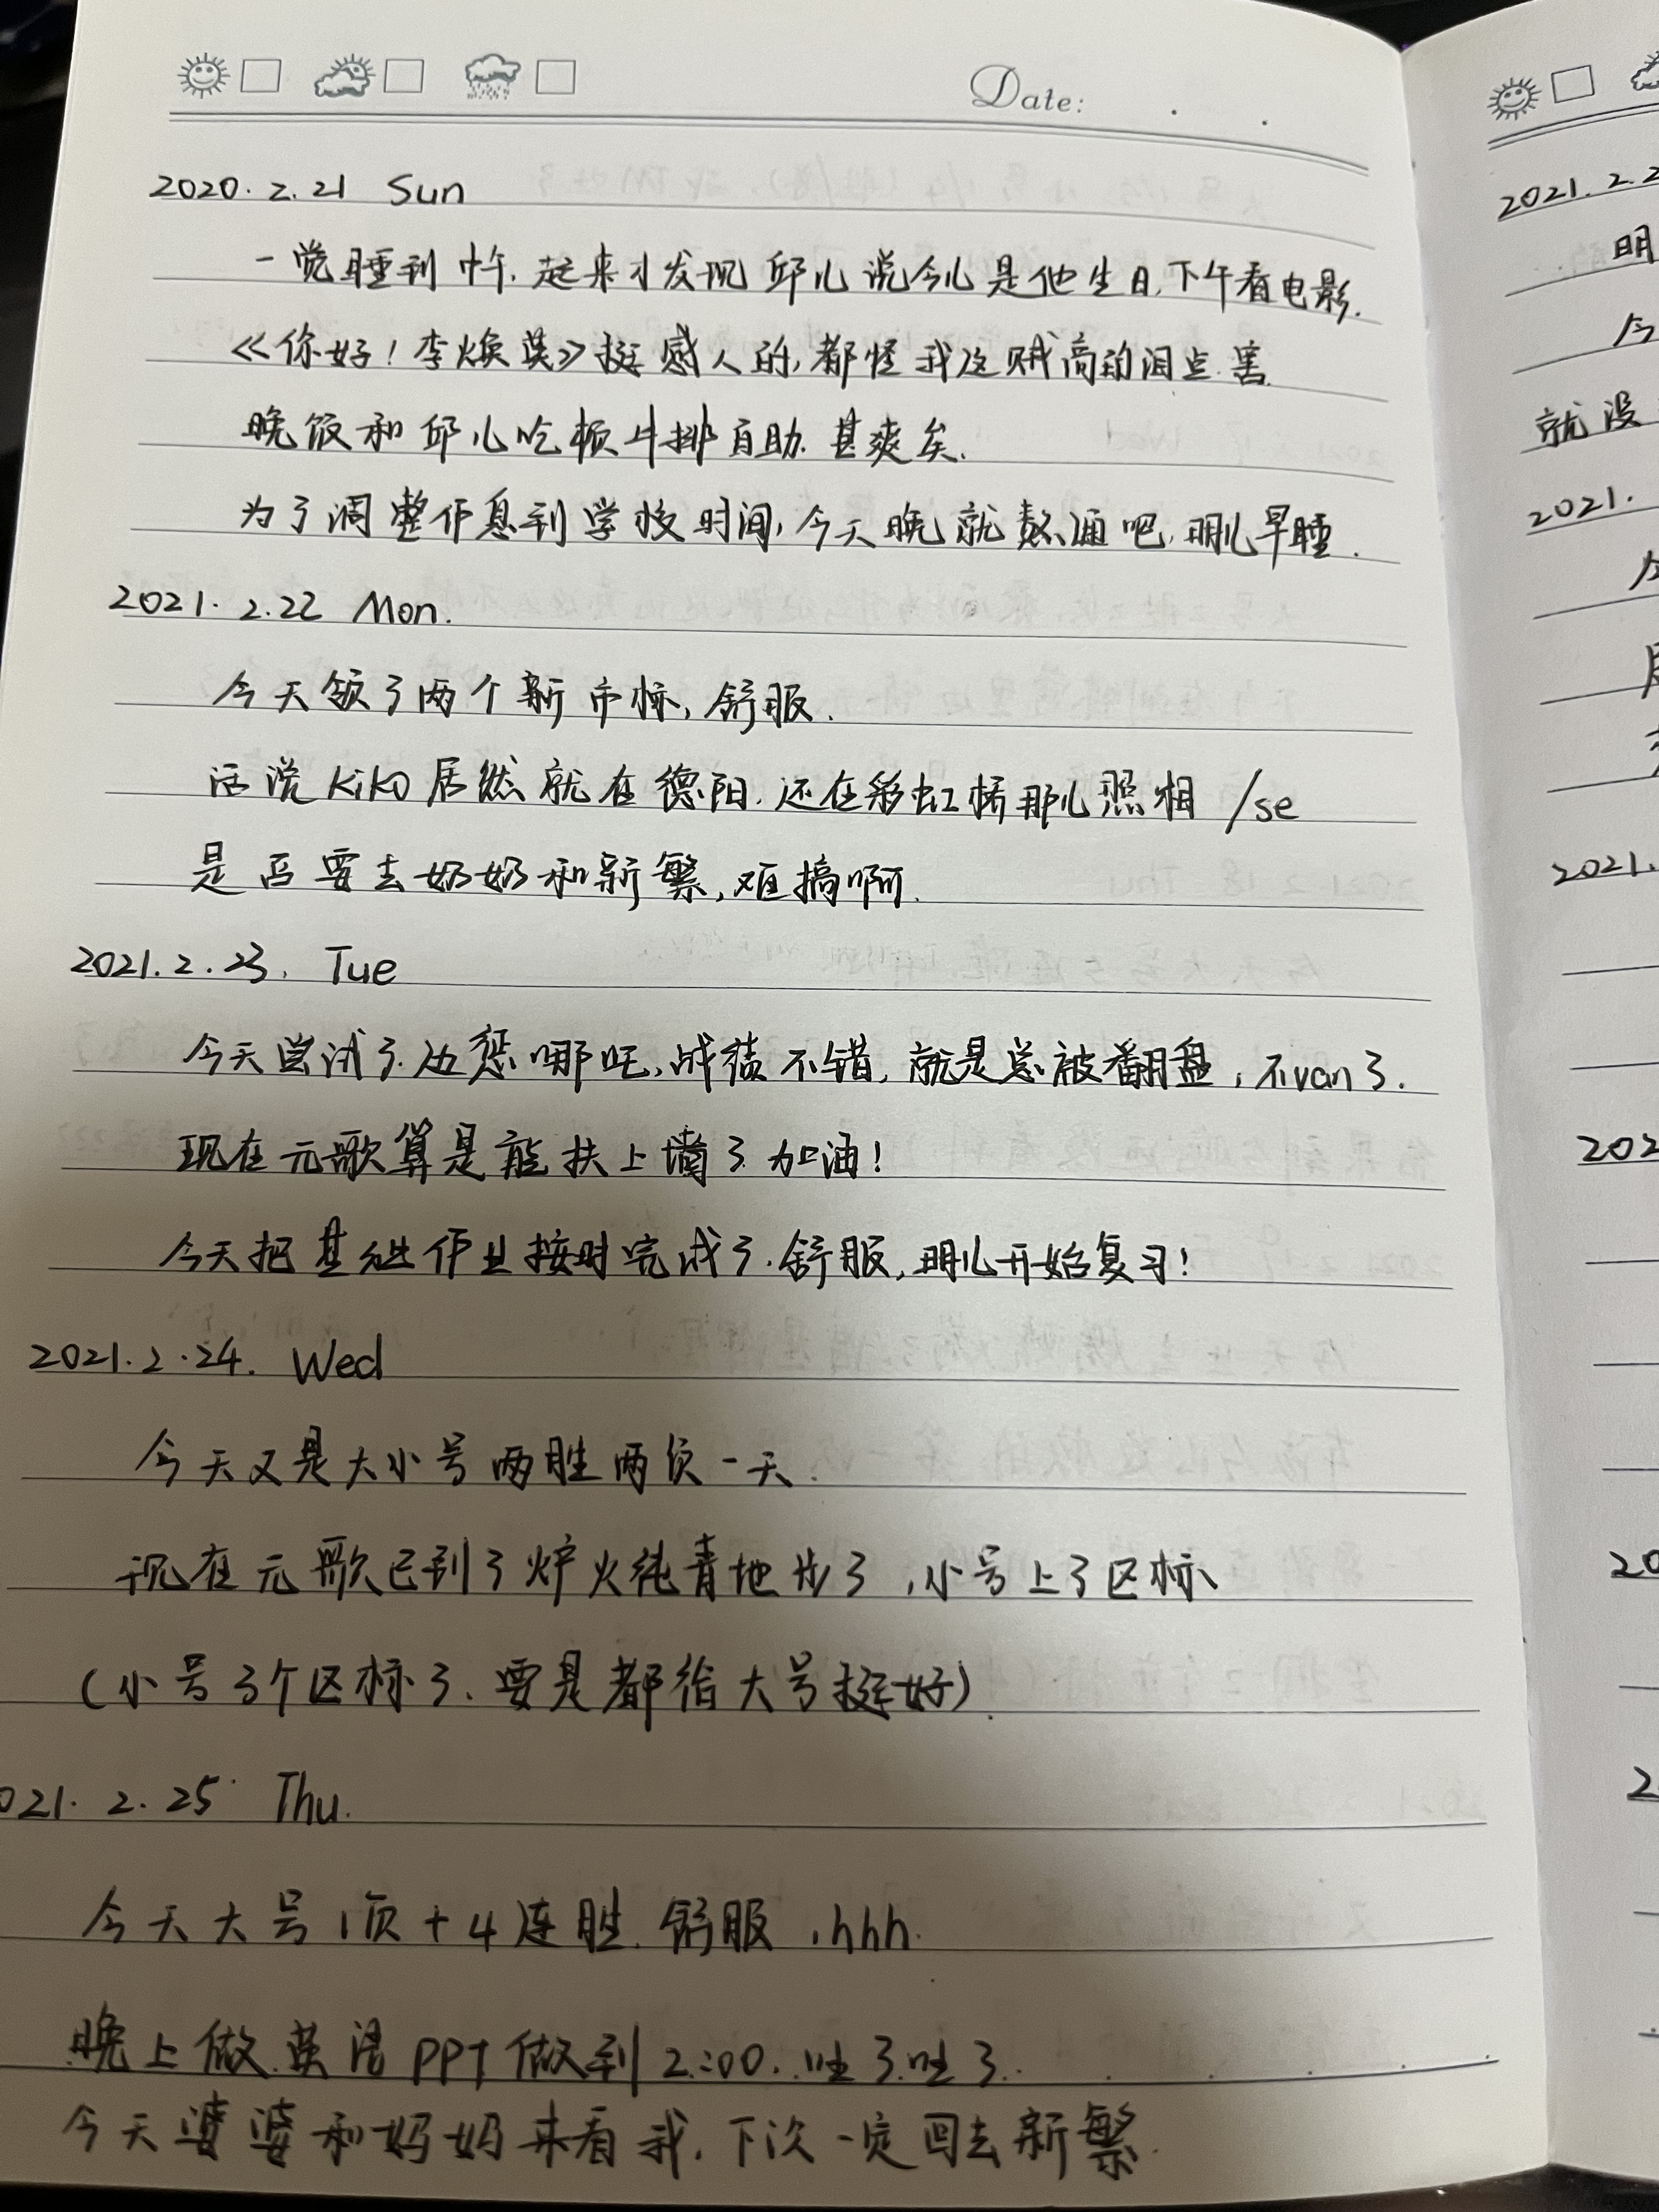 Date:
2020.2.21 Sun
一觉睡到中午.起来才发现邱儿说今儿是他生日,下午看电影.
《你好!李焕英》挺感人的,都怪我这贼高的泪点.害
晚饭和邱儿吃顿牛排自助.甚爽矣.
为了调整作息到学校时间,今天晚就熬通吧,明儿早睡.
2021.2.22 Mon.
今天领了两个新市标,舒服.
话说Kiko居然就在德阳.还在彩虹桥那儿照相 /se
是否要去奶奶和新繁,难搞啊.
2021.2.23. Tue
今天尝试了边惩哪吒,战绩不错,就是总被翻盘,不van了.
现在元歌算是能扶上墙了.加油!
今天把基础作业按时完成了.舒服,明儿开始复习!
2021.2.24. Wed
今天又是大小号两胜两负一天.
现在元歌已到了炉火纯青地步了,小号上了区标、
(小号3个区标了、要是都给大号挺好).
021.2.25 Thu.
今天大号1负+4连胜.舒服,hhh.
晚上做英语PPT做到2:00..吐了吐了.
今天婆婆和妈妈来看我.下次一定回去新繁.
2021.2.2
明
今
就没
2021.
今
2021.
202
20
2